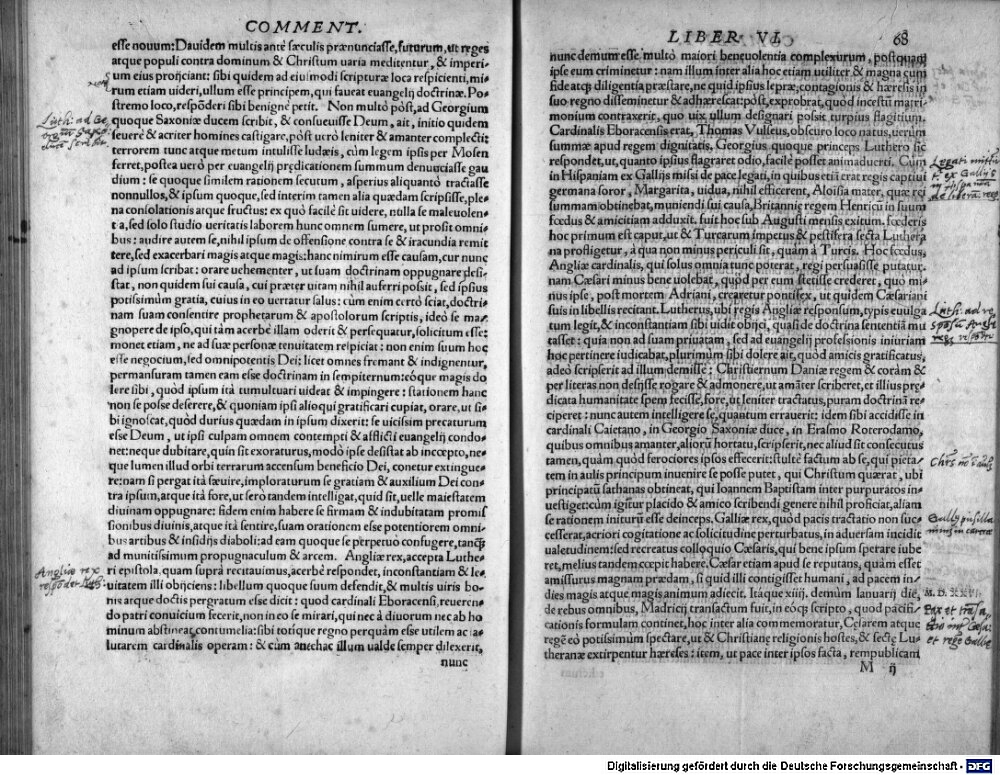 COMMENT.
esse nouum: Dauidem multis antè sæculis prænunciasse, futurum, ut reges
atque populi contra dominum & Christum uaria meditentur, & imperi-
um eius proijciant: sibi quidem ad eiusmodi scripturæ loca respicienti, mi-
rum etiam uideri, ullum esse principem, qui faueat euangelij doctrinæ. Po-
stremo loco, respōderi sibi benignè petit. Non multò pòst, ad Georgium
quoque Saxoniæ ducem scribit, & consueuisse Deum, ait, initio quidem
seuerè & acriter homines castigare, pòst uerò leniter & amanter complecti:
terrorem tunc atque metum intulisse Iudæis, cùm legem ipsis per Mosen
ferret, postea uerò per euangelij prędicationem summum denunciasse gau
dium: se quoque similem rationem secutum, asperius aliquantò tractasse
nonnullos, & ipsum quoque, sed interim tamen alia quædam scripsisse, ple-
na consolationis atque fructus: ex quo facilè sit uidere, nulla se maleuolen-
tia, sed solo studio ueritatis laborem hunc omnem sumere, ut prosit omni-
bus: audire autem se, nihil ipsum de offensione contra se & iracundia remit
tere, sed exacerbari magis atque magis: hanc nimirum esse causam, cur nunc
ad ipsum scribat: orare uehementer, ut suam doctrinam oppugnare desi-
stat, non quidem sui causa, cui præter uitam nihil auferri possit, sed ipsius
potissimùm gratia, cuius in eo uertatur salus: cùm enim certò sciat, doctri-
nam suam consentire prophetarum & apostolorum scriptis, ideò se ma-
gnopere de ipso, qui tàm acerbè illam oderit & persequatur, solicitum esse:
monet etiam, ne ad suæ personæ tenuitatem respiciat: non enim suum hoc
esse negocium, sed omnipotentis Dei: licet omnes fremant & indignentur,
permansuram tamen eam esse doctrinam in sempiternum: eóque magis do
lere sibi, quòd ipsum ità tumultuari uideat & impingere: stationem hanc
non se posse deserere, & quoniam ipsi alioqui gratificari cupiat, orare, ut si-
bi ignoscat, quòd durius quædam in ipsum dixerit: se uicissim precaturum
esse Deum, ut ipsi culpam omnem contempti & afflicti euangelij condo-
net: neque dubitare, quin sit exoraturus, modò ipse desistat ab incœpto, ne-
que lumen illud orbi terrarum accensum beneficio Dei, conetur extingue-
re: nam si pergat ità sæuire, imploraturum se gratiam & auxilium Dei con-
tra ipsum, atque ità fore, ut serò tandem intelligat, quid sit, uelle maiestatem
diuinam oppugnare: fidem enim habere se firmam & indubitatam promis
sionibus diuinis, atque ità sentire, suam orationem esse potentiorem omni-
bus artibus & insidijs diaboli: ad eam quoque se perpetuò confugere, tanq̃
ad munitissimum propugnaculum & arcem. Angliæ rex, accepta Luthe-
ri epistola, quam suprà recitauimus, acerbè respondet, inconstantiam & le-
uitatem illi obijciens: libellum quoque suum defendit, & multis uiris bo-
nis atque doctis pergratum esse dicit: quod cardinali Eboracensi, reueren-
do patri conuicium fecerit, non in eo se mirari, qui nec à diuorum nec ab ho
minum abstineat contumelia: sibi totíque regno perquàm esse utilem ac sa-
lutarem cardinalis operam: & cùm antehac illum ualde semper dilexerit,
nunc
Luth: ad Ge
Angliæ rex
LIBER VI. 68
nunc demum esse multò maiori beneuolentia complexurum, postquam
ipse eum criminetur: nam illum inter alia hoc etiam utiliter & magna cum
fide atq; diligentia præstare, ne quid ipsius lepræ, contagionis & hæresis in
suo regno disseminetur & adhærescat: pòst, exprobrat, quòd incestū matri-
monium contraxerit, quo uix ullum designari possit turpius flagitium.
Cardinalis Eboracensis erat, Thomas Vulseus, obscuro loco natus, uerùm
summæ apud regem dignitatis. Georgius quoque princeps Luthero sic
respondet, ut, quanto ipsius flagraret odio, facilè posset animaduerti. Cùm
in Hispaniam ex Gallijs missi de pace legati, in quibus etiā erat regis captiui
germana soror, Margarita, uidua, nihil efficerent, Aloisia mater, quæ rei
summam obtinebat, muniendi sui causa, Britannię regem Henricū in suum
fœdus & amicitiam adduxit. fuit hoc sub Augusti mensis exitum. fœderis
hoc primum est caput, ut & Turcarum impetus & pestifera secta Luthera
na profligetur, à qua non minus periculi sit, quàm à Turcis. Hoc fœdus,
Angliæ cardinalis, qui solus omnia tunc poterat, regi persuasisse putatur.
nam Cæsari minus bene uolebat, quòd per eum stetisse crederet, quo mi-
nus ipse, post mortem Adriani, crearetur pontifex, ut quidem Cæsariani
suis in libellis recitant. Lutherus, ubi regis Angliæ responsum, typis euulga
tum legit, & inconstantiam sibi uidit obijci, quasi de doctrina sententiā mu
tasset: quia non ad suam priuatam, sed ad euangelij professionis iniuriam
hoc pertinere iudicabat, plurimùm sibi dolere ait, quòd amicis gratificatus,
adeò scripserit ad illum demissè: Christiernum Daniæ regem & coràm &
per literas non desijsse rogare & admonere, ut amāter scriberet, et illius præ-
dicata humanitate spem fecisse, fore, ut leniter tractatus, puram doctrinā re-
ciperet: nunc autem intelligere se, quantum errauerit: idem sibi accidisse in
cardinali Caietano, in Georgio Saxoniæ duce, in Erasmo Roterodamo,
quibus omnibus amanter, aliorū hortatu, scripserit, nec aliud sit consecutus
tamen, quàm quòd ferociores ipsos effecerit: stultè factum ab se, qui pieta-
tem in aulis principum inuenire se posse putet, qui Christum quærat, ubi
principatū sathanas obtineat, qui Ioannem Baptistam inter purpuratos in-
uestiget: cùm igitur placido & amico scribendi genere nihil proficiat, aliam
se rationem initurū esse deinceps. Galliæ rex, quòd pacis tractatio non suc-
cesserat, acriori cogitatione ac solicitudine perturbatus, in aduersam incidit
ualetudinem: sed recreatus colloquio Cæsaris, qui bene ipsum sperare iube
ret, melius tandem cœpit habere. Cæsar etiam apud se reputans, quàm esset
amissurus magnam prædam, si quid illi contigisset humani, ad pacem in-
dies magis atque magis animum adiecit. Itáque xiiij. demùm Ianuarij die,
de rebus omnibus, Madricij transactum fuit, in eóq; scripto, quod pacifi-
cationis formulam continet, hoc inter alia commemoratur, Cęsarem atque
regē eò potissimùm spectare, ut & Christianę religionis hostes, & sectę Lu-
theranæ extirpentur hæreses: item, ut pace inter ipsos facta, rempublicam
M ij
Legati missi
Luth: ad re
M. D. XXVI.
Digitalisierung gefördert durch die Deutsche Forschungsgemeinschaft - DFG